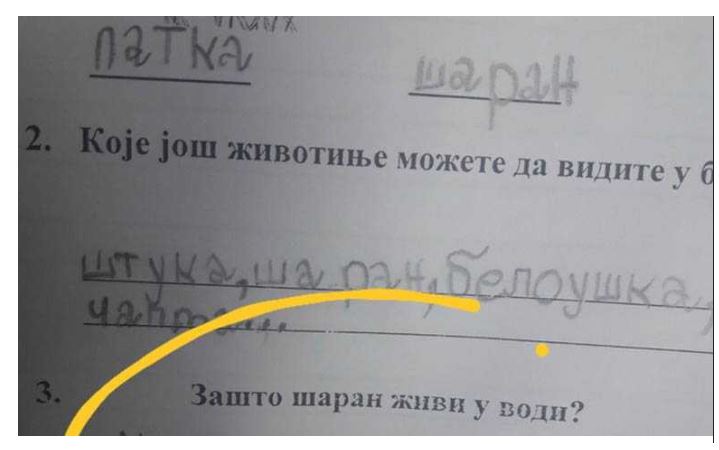 патка
шаран
2. Које још животиње можете да видите у б
штука, шаран, белоушка,
чапља...
3. Зашто шаран живи у води?